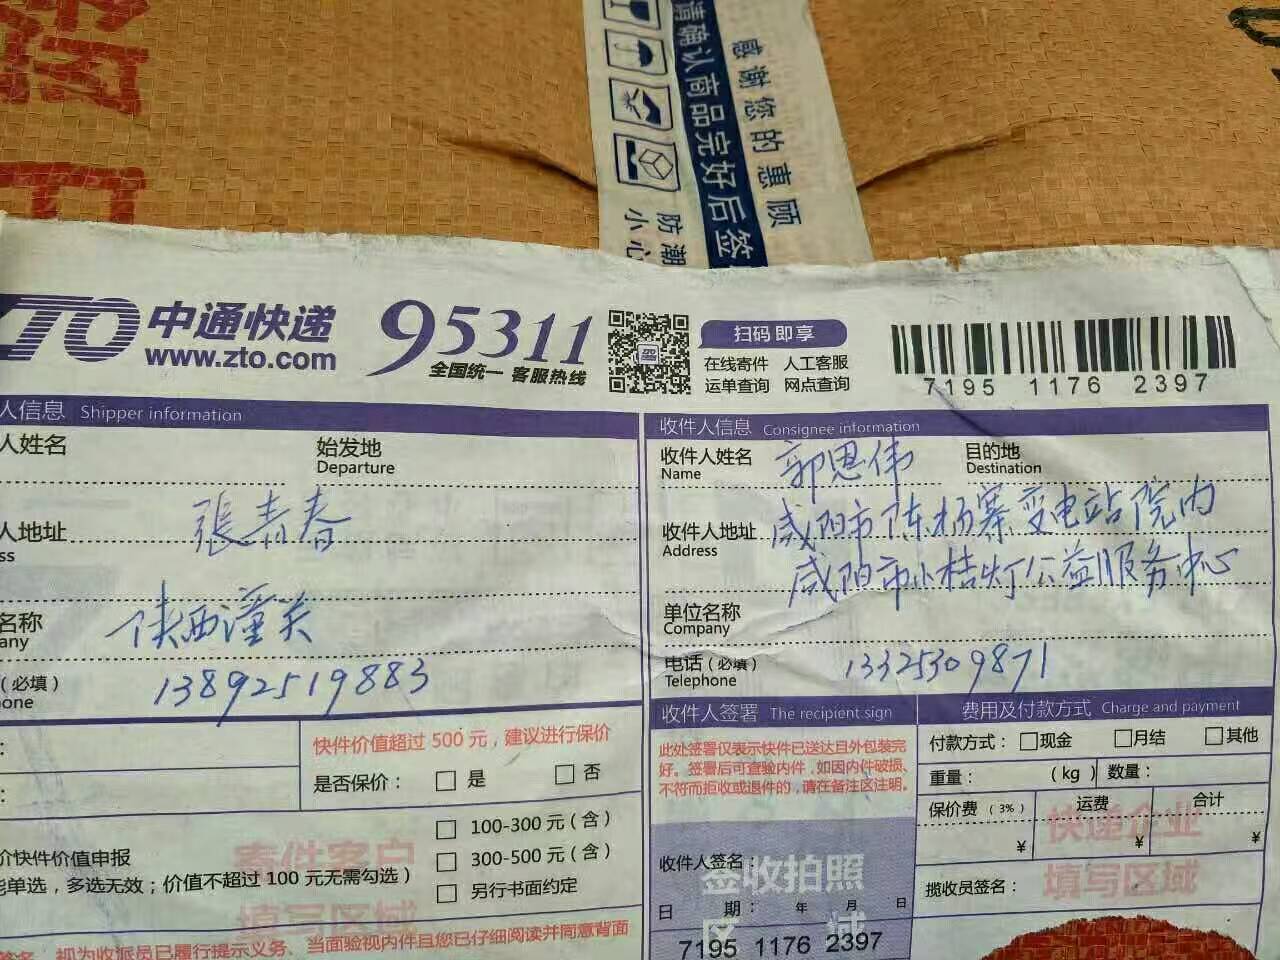 请确认商品完好后签
感谢您的惠顾
防潮
小心
ZTO 中通快递
www.zto.com
95311
全国统一 客服热线
扫码即享
在线寄件 人工客服
运单查询 网点查询
7195 1176 2397
人信息 Shipper information
人姓名
始发地
Departure
人地址
ss
張青春
名称
any
陕西潼关
(必填)
one
13892519883
收件人信息 Consignee information
收件人姓名
Name
郭恩伟
目的地
Destination
收件人地址
Address
咸阳市陈杨寨变电站院内
咸阳市小桔灯公益服务中心
单位名称
Company
电话(必填)
Telephone
13325309871
快件价值超过 500 元，建议进行保价
是否保价： 是 否
100-300 元(含)
300-500 元(含)
另行书面约定
价快件价值申报
能单选，多选无效；价值不超过 100 元无需勾选)
寄件客户
填写区域
签名，视为收派员已履行提示义务、当面验视内件且您已仔细阅读并同意背面
收件人签署 The recipient sign
此处签署仅表示快件已送达且外包装完
好。签署后可查验内件，如因内件破损、
不符而拒收或退件的，请在备注区注明。
收件人签名：
签收拍照
区域
日 期： 年 月 日
7195 1176 2397
费用及付款方式 Charge and payment
付款方式： 现金 月结 其他
重量： (kg) 数量：
保价费(3%) 运费 合计
¥ ¥ ¥
快递企业
填写区域
揽收员签名：